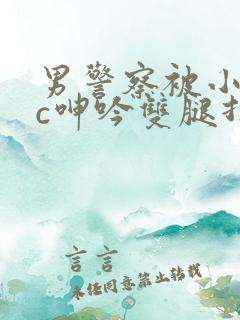 男警察被小
c呻吟雙腿
言言
未经同意禁止转载